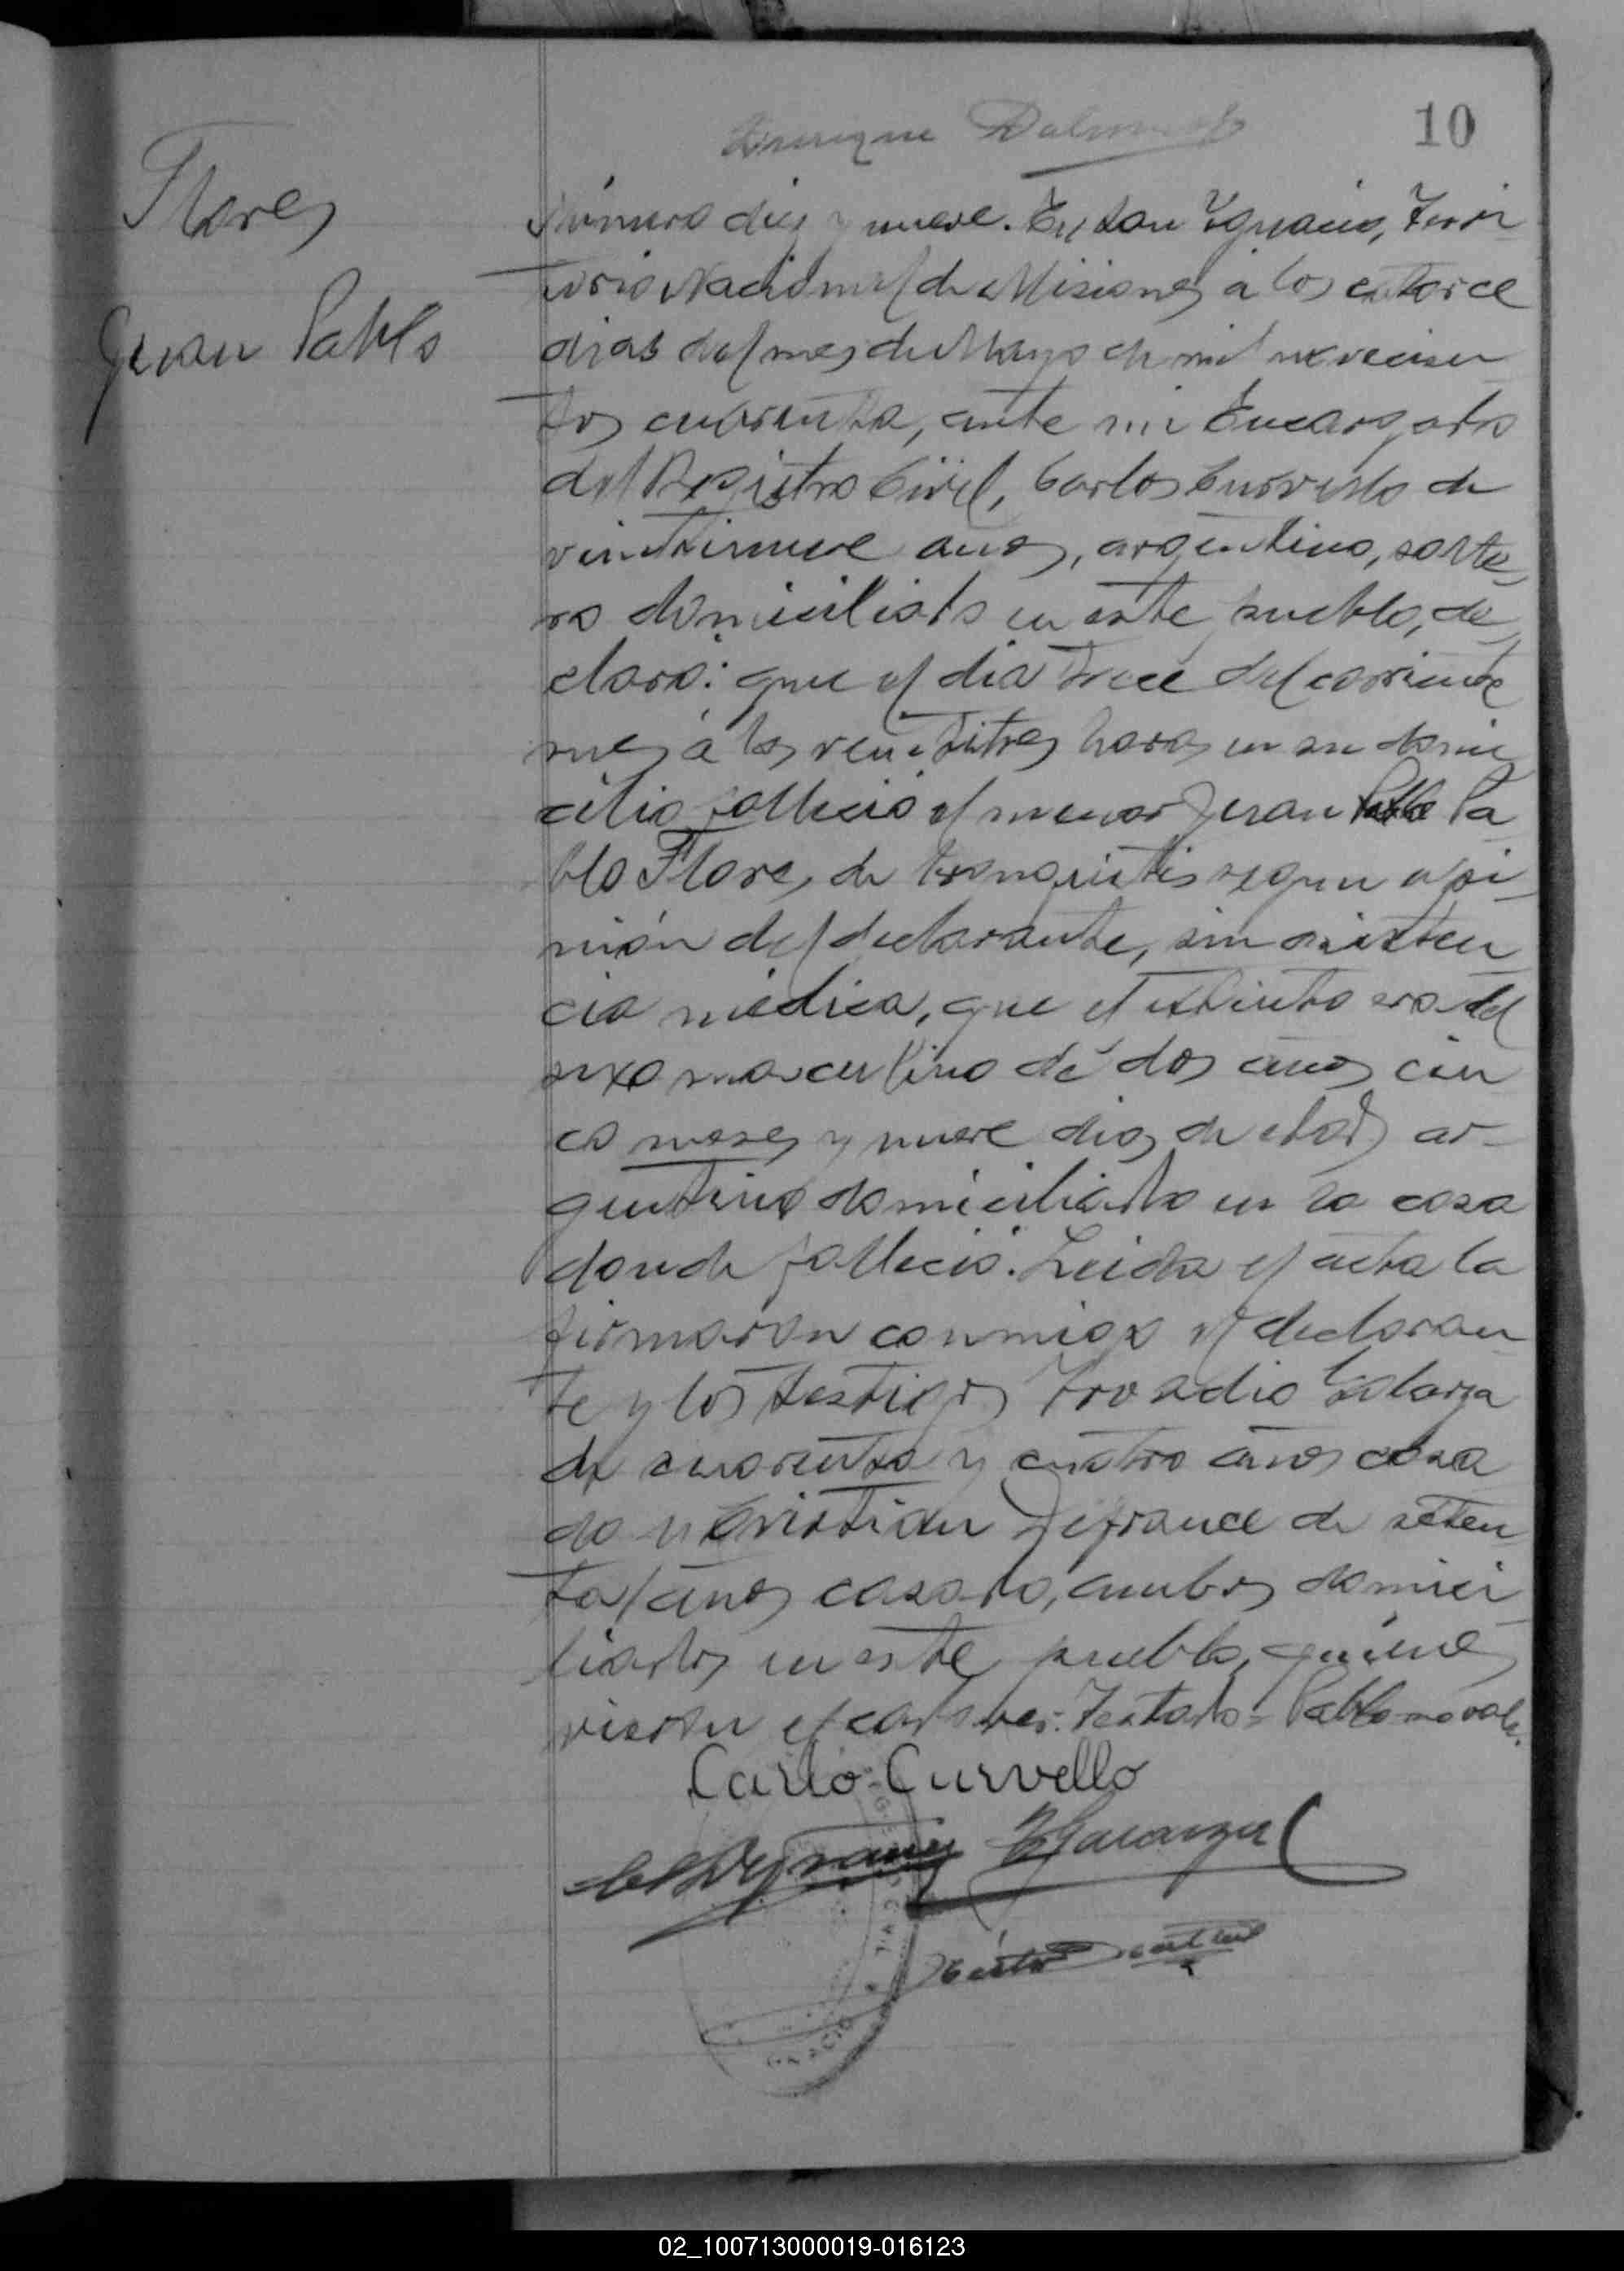 10
Flores
Juan Pablo
Número diez y nueve. En San Ygnacio, Terri
torio Nacional de Misiones a los catorce
dias del mes de Mayo de mil novecien
tos cuarenta, ante mi Encargado
del Registro Civil, Carlos Curvello de
veintinueve años, argentino, solte
ro domiciliado en este pueblo, de
claro: que el dia trece del corriente
mes á las veintitres horas en su domi
cilio fallecio el menor Juan Pablo Pa
blo Flores, de bronquitis segun opi
nión del declarante, sin asisten
cia médica, que el extinto era del
sexo masculino de dos años cin
co meses y nueve dias de edad, ar-
gentino domiciliado en la casa
donde fallecio. Leida el acta la
firmaron conmigo el declaran
te y los testigos Galarza
de cuarenta y cuatro años casa
do y Cristian Defrance de seten
ta años casado, ambos domici
liados en este pueblo, quienes
vieron el cadaver. Testado = Pablo no vale.
Carlos Curvello
02_100713000019-016123